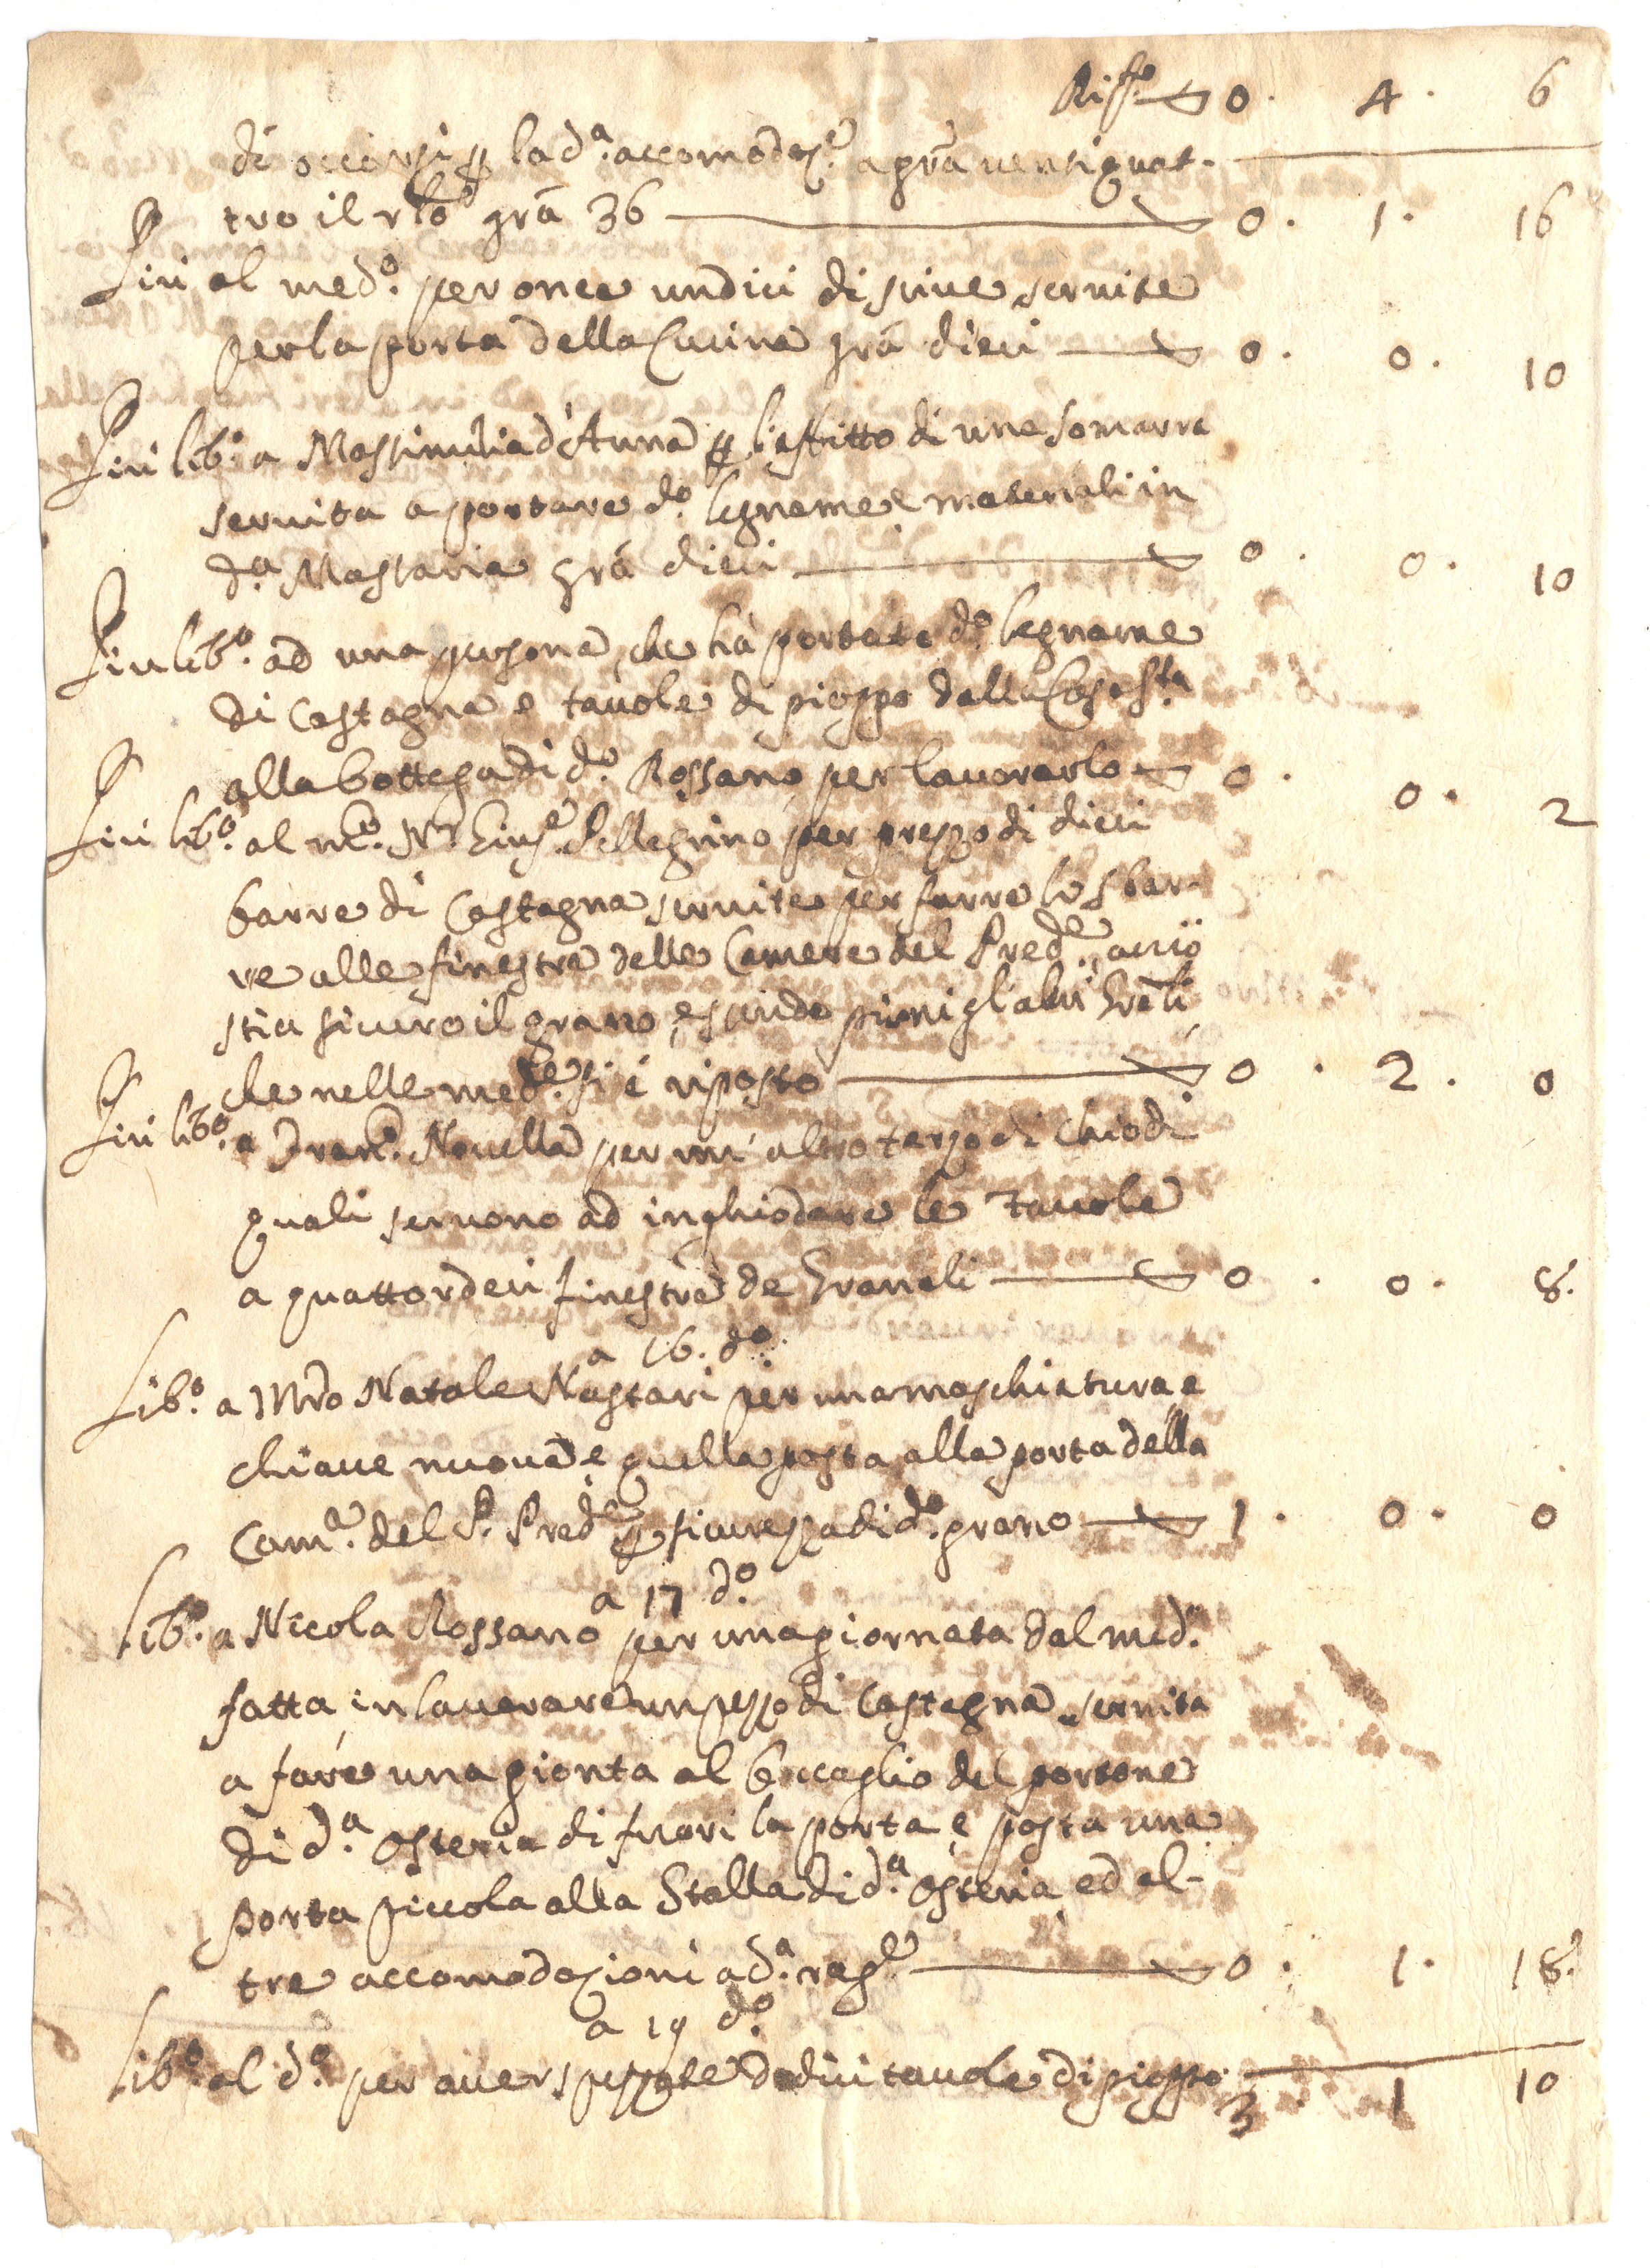 Riss.o 0. 4. 6
di occorsi p la d.a accomodaz.e a grã ventiquat-
tro il rlo grã 36 0. 1. 16
Più al med.o per once undici di scive servite
per la porta della Cucina grã dieci 0. 0. 10
Più lib.o a Massimilia d'Auna p l'affitto di una somarra
servita a portare d.o legname e materiali in
d.a Mastaria grã dieci 0. 0. 10
Più lib.o ad una persona, che hà portato d.o legname
di Castagna e tavole di pioppo dalla Cosesta
alla bottega di d.o Rossano per lavorarlo 0. 0. 2
Più lib.o al Pellegrino per prezzo di dieci
barre di Castagna servite per farre le sbar-
re alle finestre delle Camere del Pred.e, acciò
stia sicuro il grano, essendo pieni gl'altri Grãli
che nelle med.e si è riposto 0. 2. 0
Più lib.o a Fran.o Novella per un'altro terzo di Chiodi
quali servono ad inghiodare le Tavole
a quattordeci finestre de Granali 0. 0. 8.
a 16. d.o
Lib.o a Mro Natale Nastari per una maschiatura e
chiave nuova e quella posta alla porta della
Cam.a del P. Pred.e p sicurezza di d.o grano 1. 0. 0
a 17 d.o
Lib.o a Nicola Rossano per una giornata dal med.o
fatta in lavorare un pezzo di Castagna servita
a fare una gionta al boccaglio del portone
di d.a Osteria di fuori la porta e posta una
porta piccola alla Stalla di d.a Osteria ed al-
tre accomodazioni a d.a rag.e 0. 1. 18.
a 19 d.o
Lib.o al d.o per aver spezzate dodici tavole di pioppo
3. 1 10